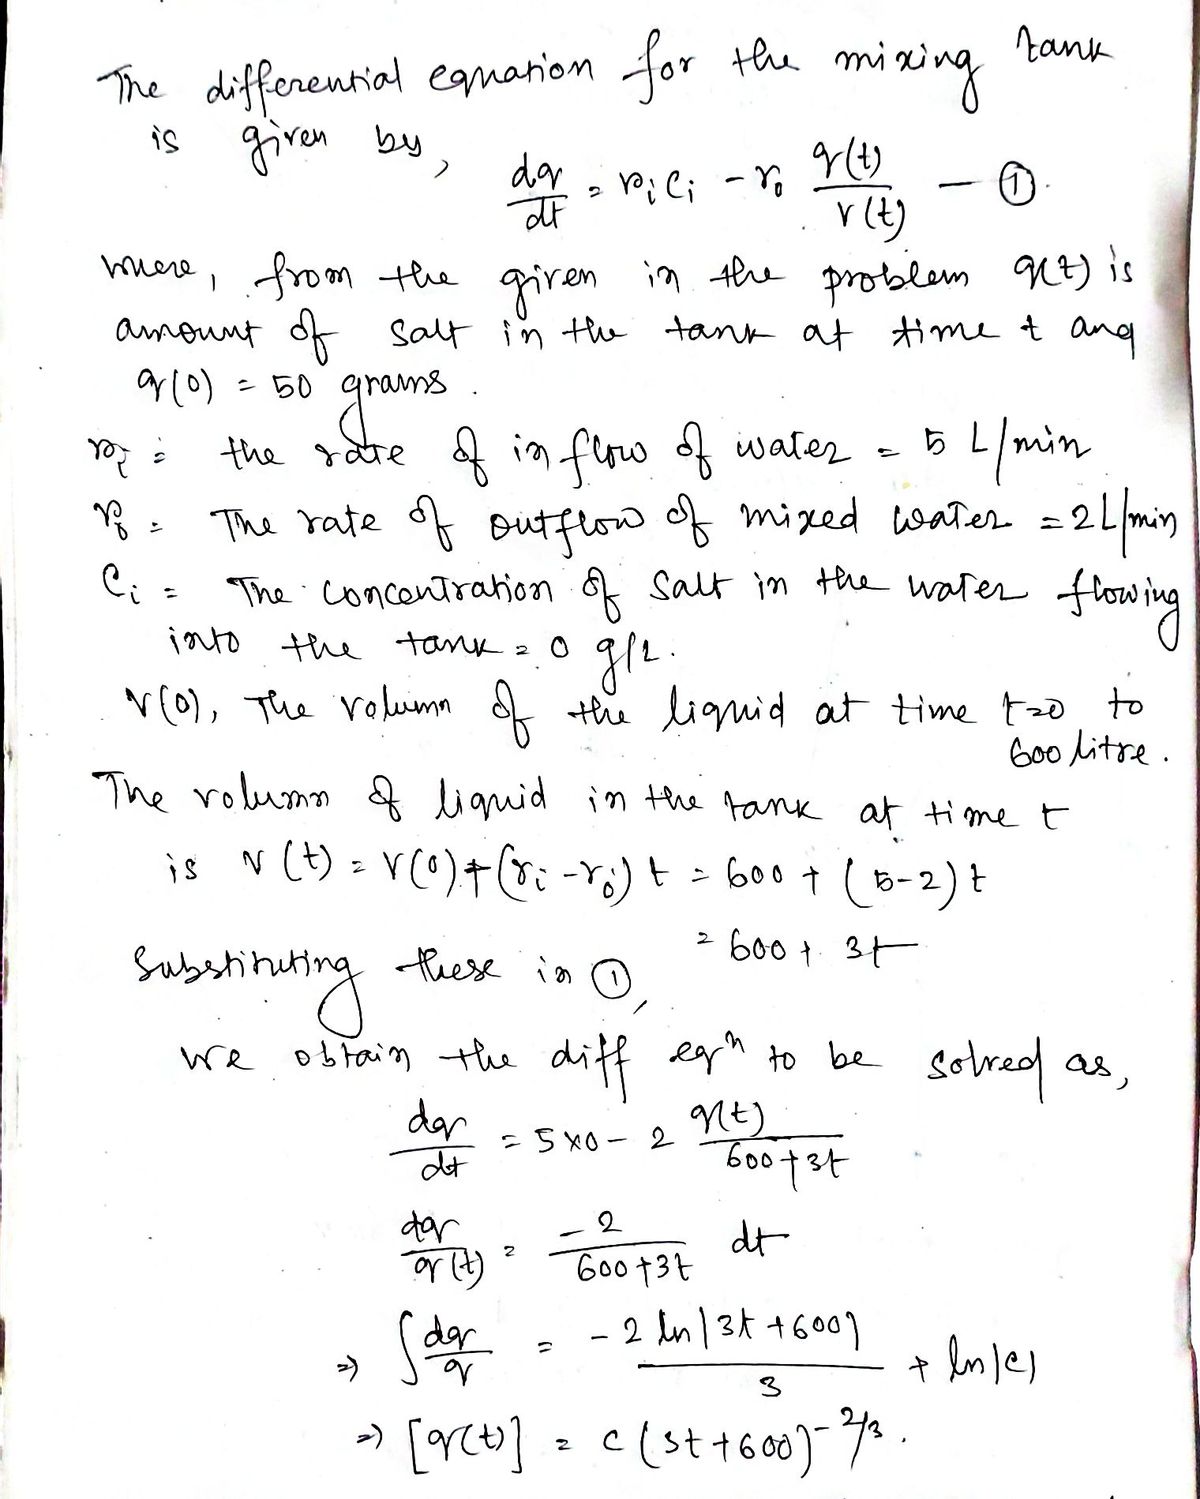 The differential equation for the mixing tank
is given by,
dq/dt = r_i C_i - r_o q(t)/v(t) — ①.
where, from the given in the problem q(t) is
amount of salt in the tank at time t and
q(0) = 50 grams.
r_i = the rate of inflow of water = 5 L/min
r_o = The rate of outflow of mixed water = 2 L/min
C_i = The concentration of salt in the water flowing
into the tank = 0 g/L.
V(0), The volumn of the liquid at time t=0 to
600 litre.
The volumn of liquid in the tank at time t
is V(t) = V(0) + (r_i - r_o) t = 600 + (5-2) t
= 600 + 3t
Substituting these in ①,
we obtain the diff eqⁿ to be solved as,
dq/dt = 5×0 - 2 q(t)/(600+3t)
dq/q(t) = -2/(600+3t) dt
⇒ ∫ dq/q = -2 ln|3t+600|/3 + ln|c|
⇒ [q(t)] = c (3t+600)^(-2/3).